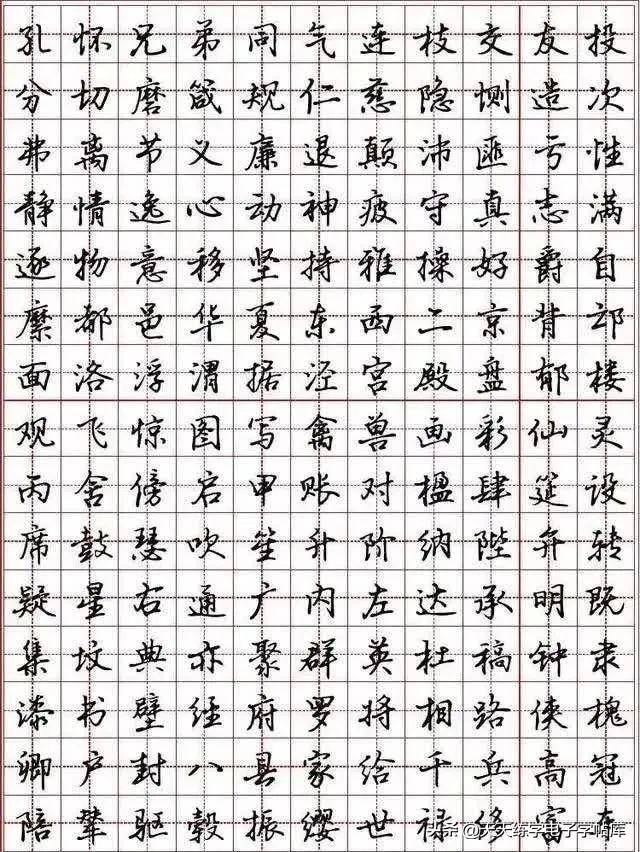 孔怀兄弟同气连枝交友投
分切磨箴规仁慈隐恻造次
弗离节义廉退颠沛匪亏性
静情逸心动神疲守真志满
逐物意移坚持雅操好爵自
縻都邑华夏东西二京背邙
面洛浮渭据泾宫殿盘郁楼
观飞惊图写禽兽画彩仙灵
丙舍傍启甲账对楹肆筵设
席鼓瑟吹笙升阶纳陛弁转
疑星右通广内左达承明既
集坟典亦聚群英杜稿钟隶
漆书壁经府罗将相路侠槐
卿户封八县家给千兵高冠
陪辇驱毂振缨世禄侈富车
头条@天天练字电子字帖库